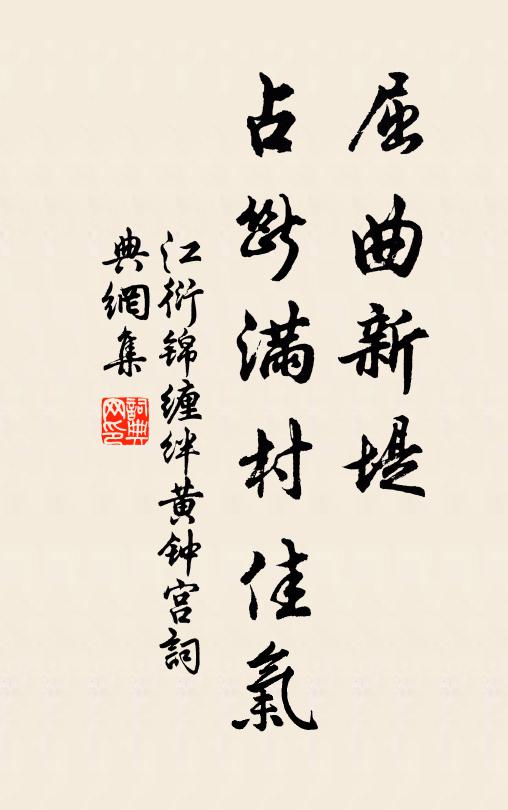 屈曲新堤
占断满村佳氣
江衍锦缠绊黄钟宫詞
典網集
詞典網印